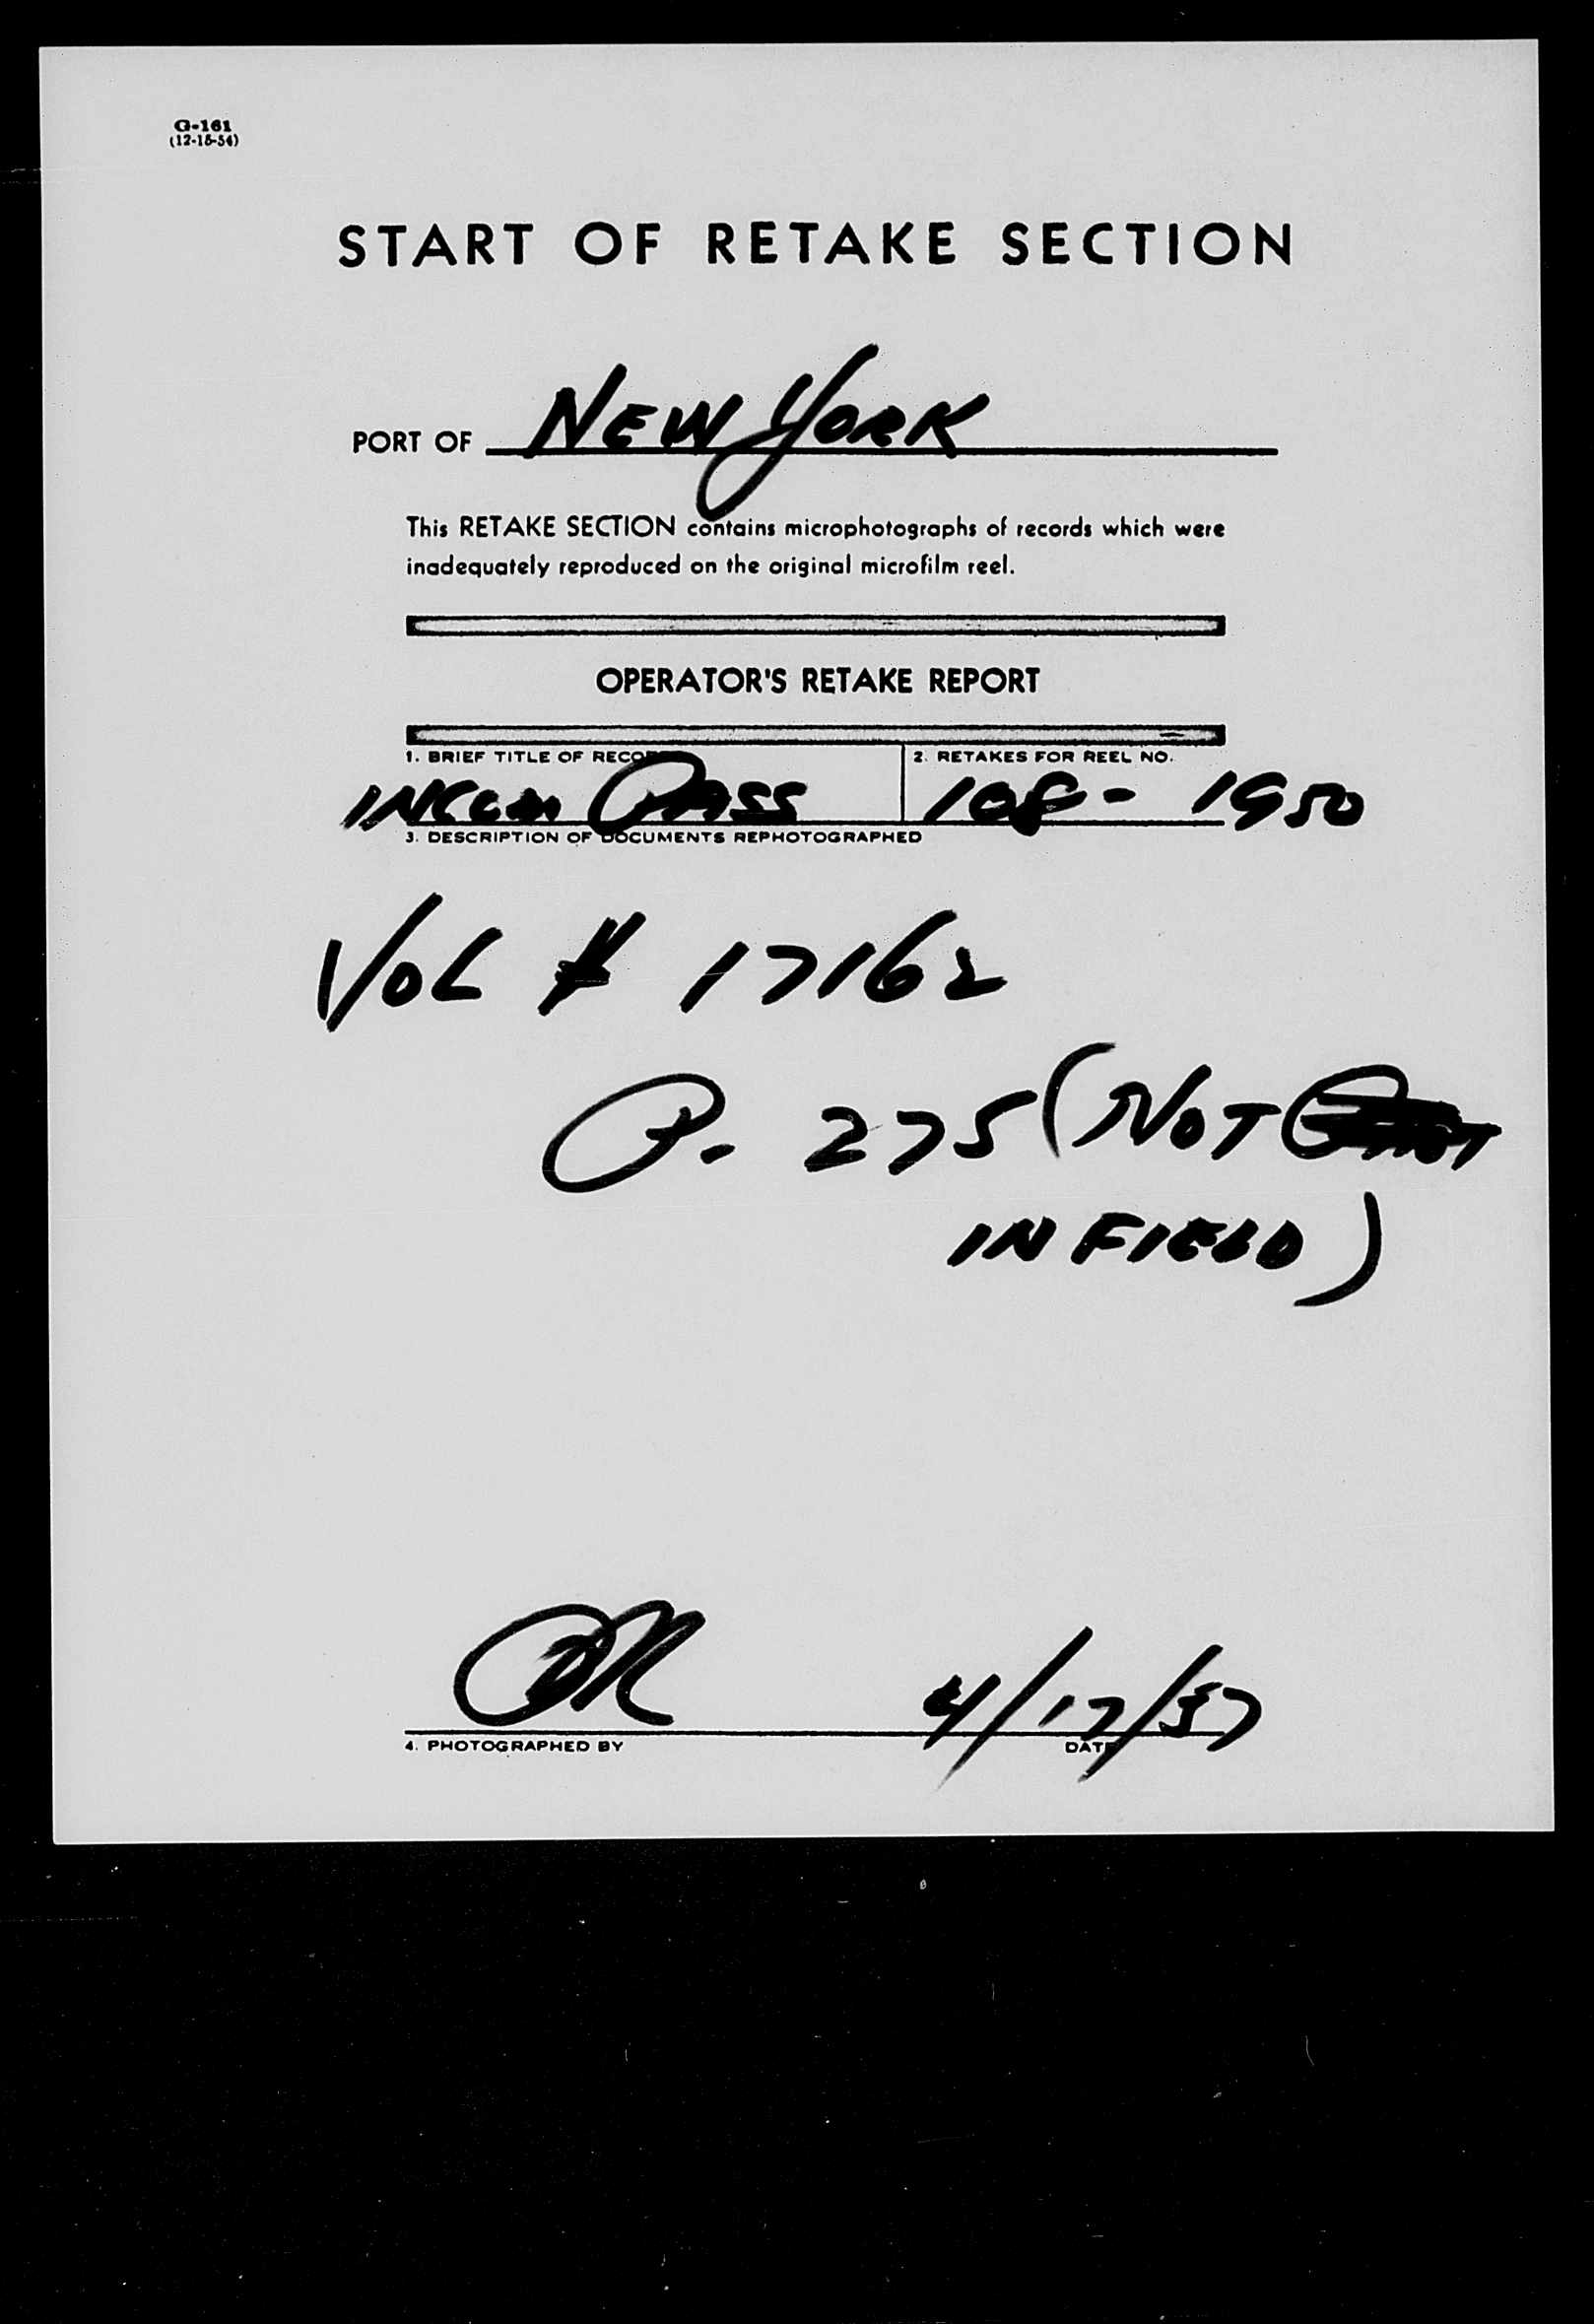 G-161
(12-15-54)
START OF RETAKE SECTION
PORT OF NEW YORK
This RETAKE SECTION contains microphotographs of records which were
inadequately reproduced on the original microfilm reel.
OPERATOR'S RETAKE REPORT
1. BRIEF TITLE OF RECORD 2. RETAKES FOR REEL NO.
INCOM PASS 108 - 1950
3. DESCRIPTION OF DOCUMENTS REPHOTOGRAPHED
VOL # 17162
P. 275 (NOT
IN FIELD)
4/17/57
4. PHOTOGRAPHED BY DATE